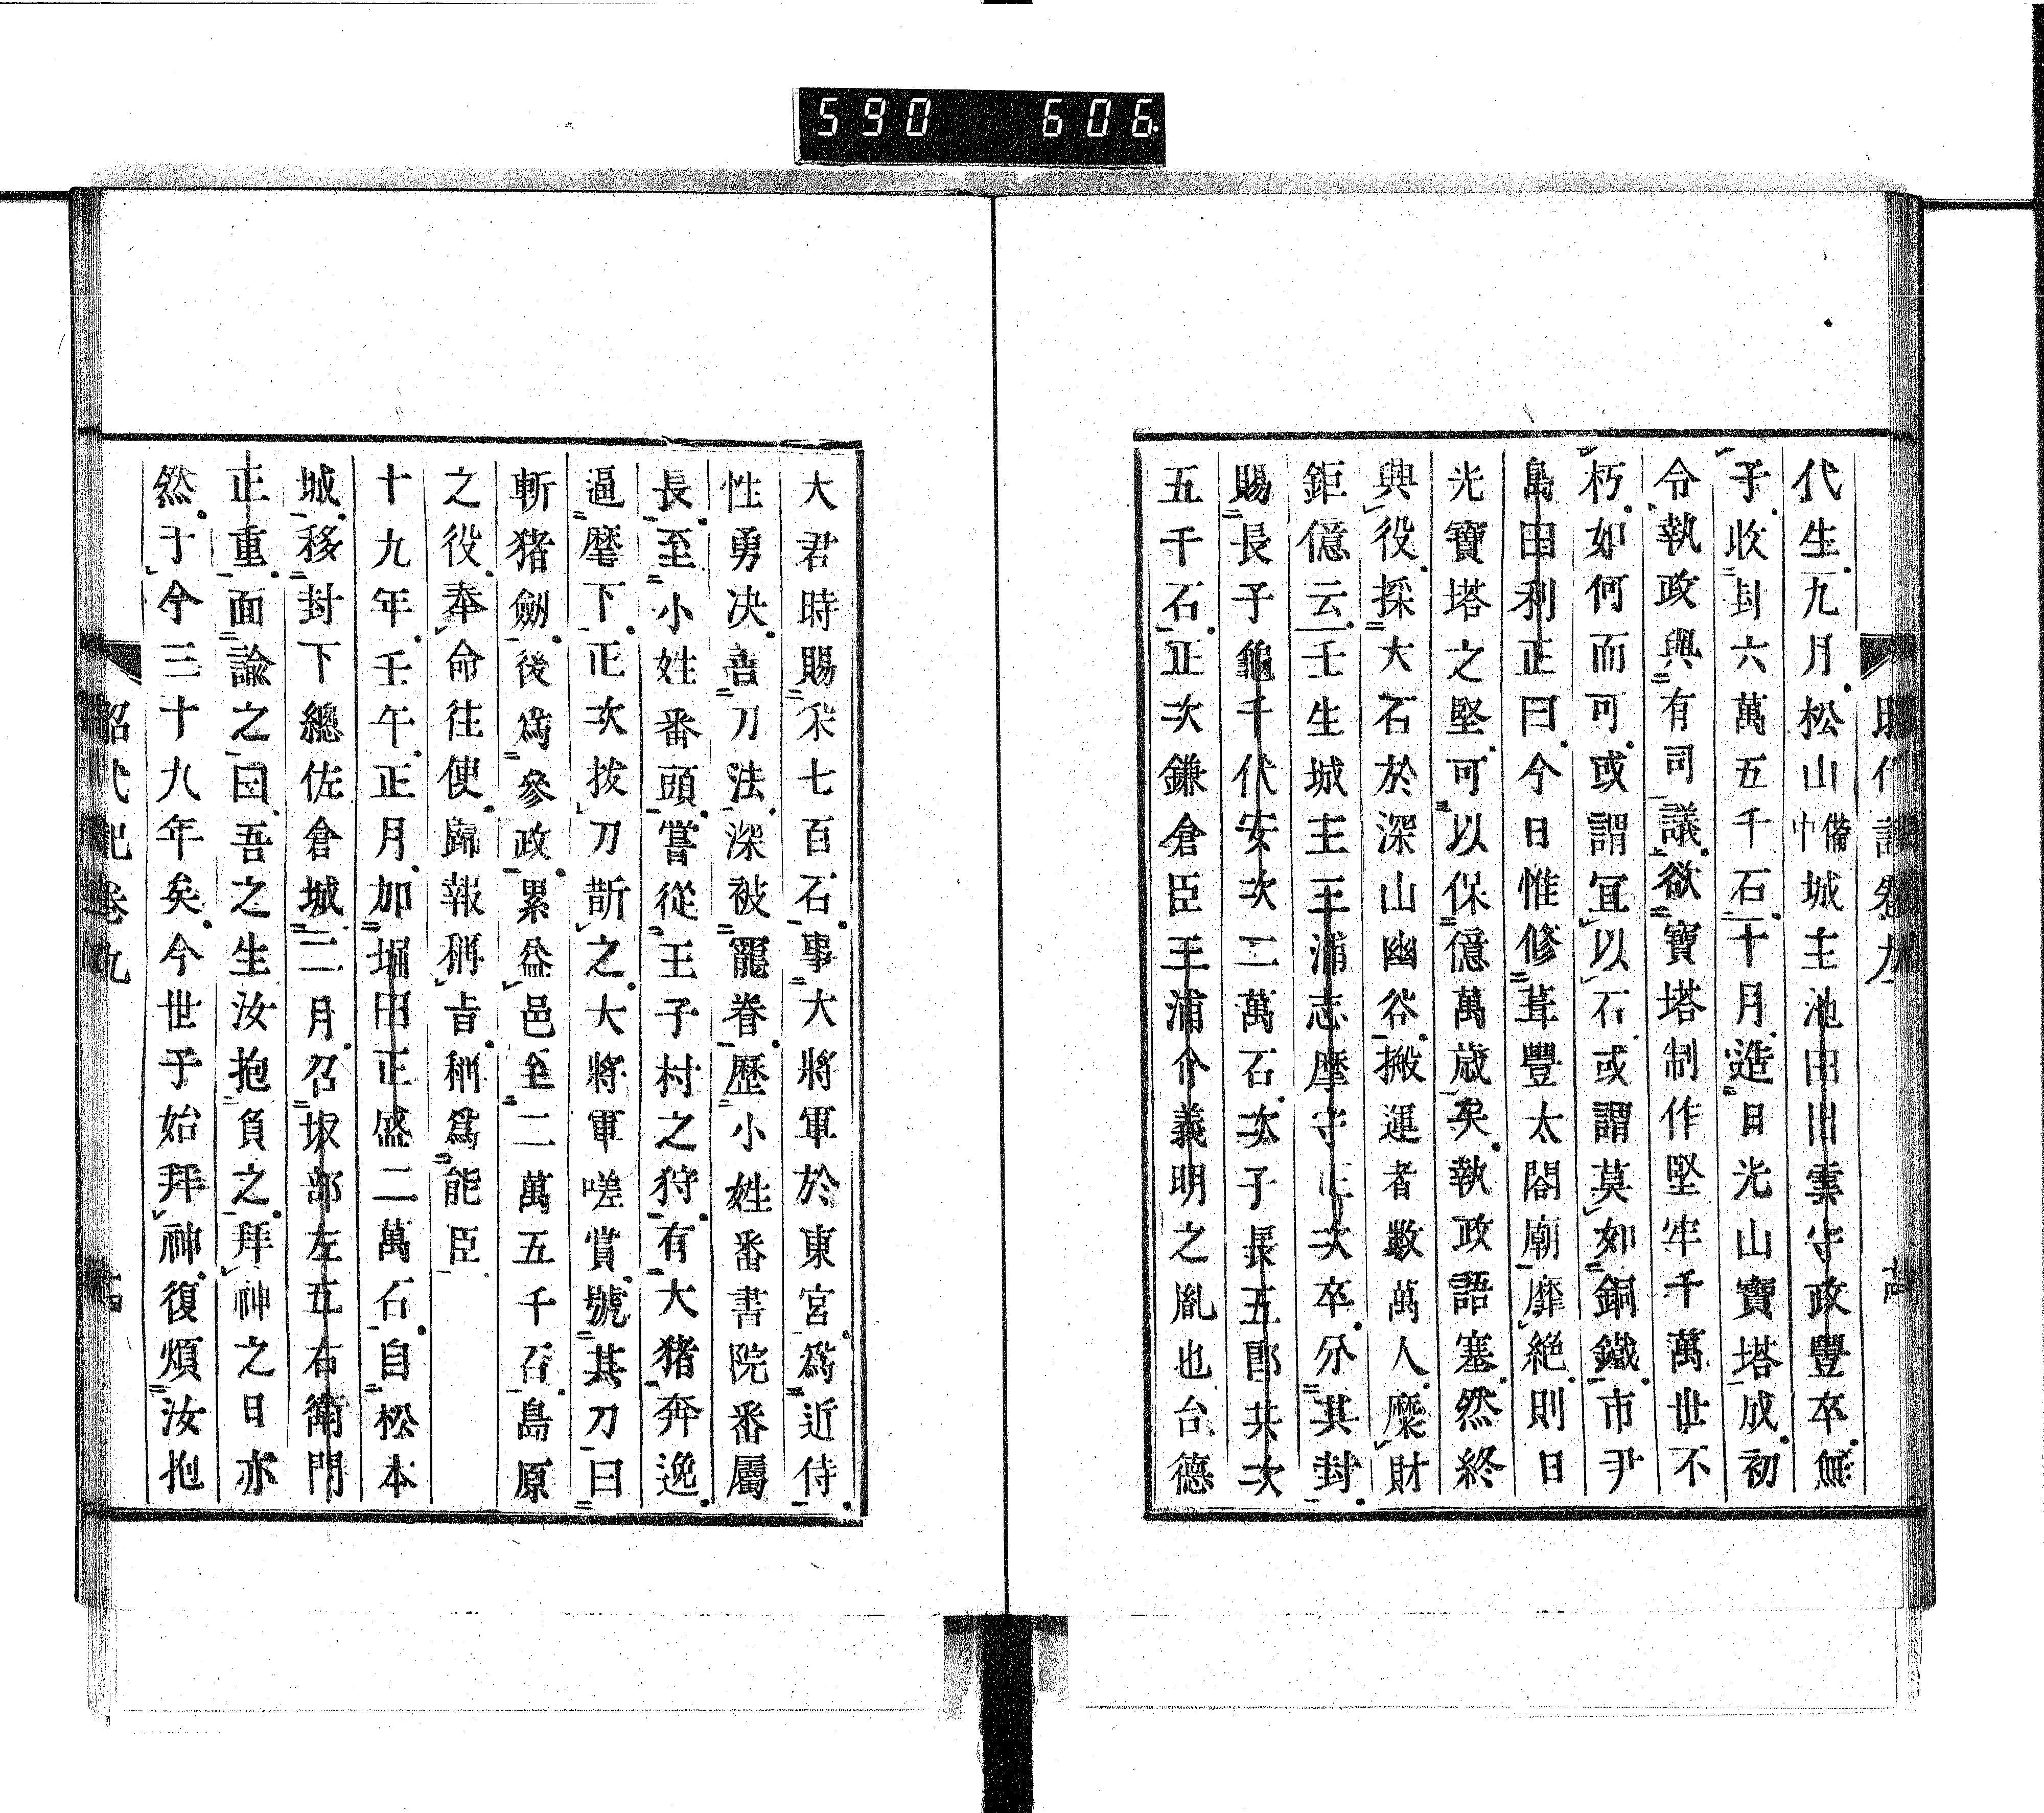 590 606
代生九月松山備中城主池田出雲守政豐卒無
子收封六萬五千石十月造日光山寶塔成初
令執政與有司議欲寶塔制作堅牢千萬世不
朽如何而可或謂宜以石或謂莫如銅鐵市尹
島田利正曰今日惟修葺豐太閤廟靡絶則日
光寶塔之堅可以保億萬歲矣執政語塞然終
興役採大石於深山幽谷搬運者數萬人糜財
鉅億云壬生城主三浦志摩守正次卒分其封
賜長子龜千代安次二萬石次子長五郎共次
五千石正次鎌倉臣三浦介義明之胤也台德
大君時賜釆七百石事大將軍於東宮爲近侍
性勇決善刀法深被寵眷歷小姓番書院番屬
長至小姓番頭嘗從王子村之狩有大猪奔逸
逼麾下正次拔刀斫之大將軍嗟賞號其刀曰
斬猪劍後爲參政累益邑至二萬五千召島原
之役奉命往使歸報稱旨稱爲能臣
十九年壬午正月加堀田正盛二萬石自松本
城移封下總佐倉城二月召坂部左五右衛門
正重面諭之曰吾之生汝抱負之拜神之日亦
然于今三十九年矣今世子始拜神復煩汝抱
昭代記卷九